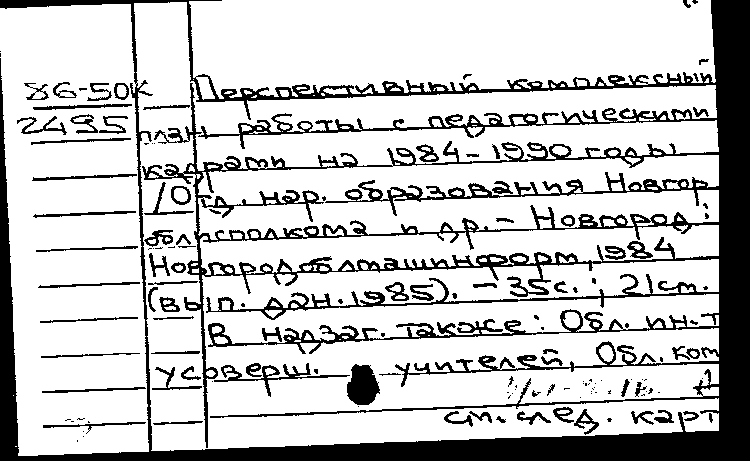 86-50К Перспективный комплексный
2495 план работы с педагогическими
кадрами на 1984-1990 годы
/Отд. нар. образования Новгор.
облисполкома и др. - Новгород:
Новгородоблмашинформ, 1984
(вып. дан. 1985). - 35с.; 21см.
В надзаг. также: Обл. ин-т
усоверш. учителей, Обл. ком
см. след. карт